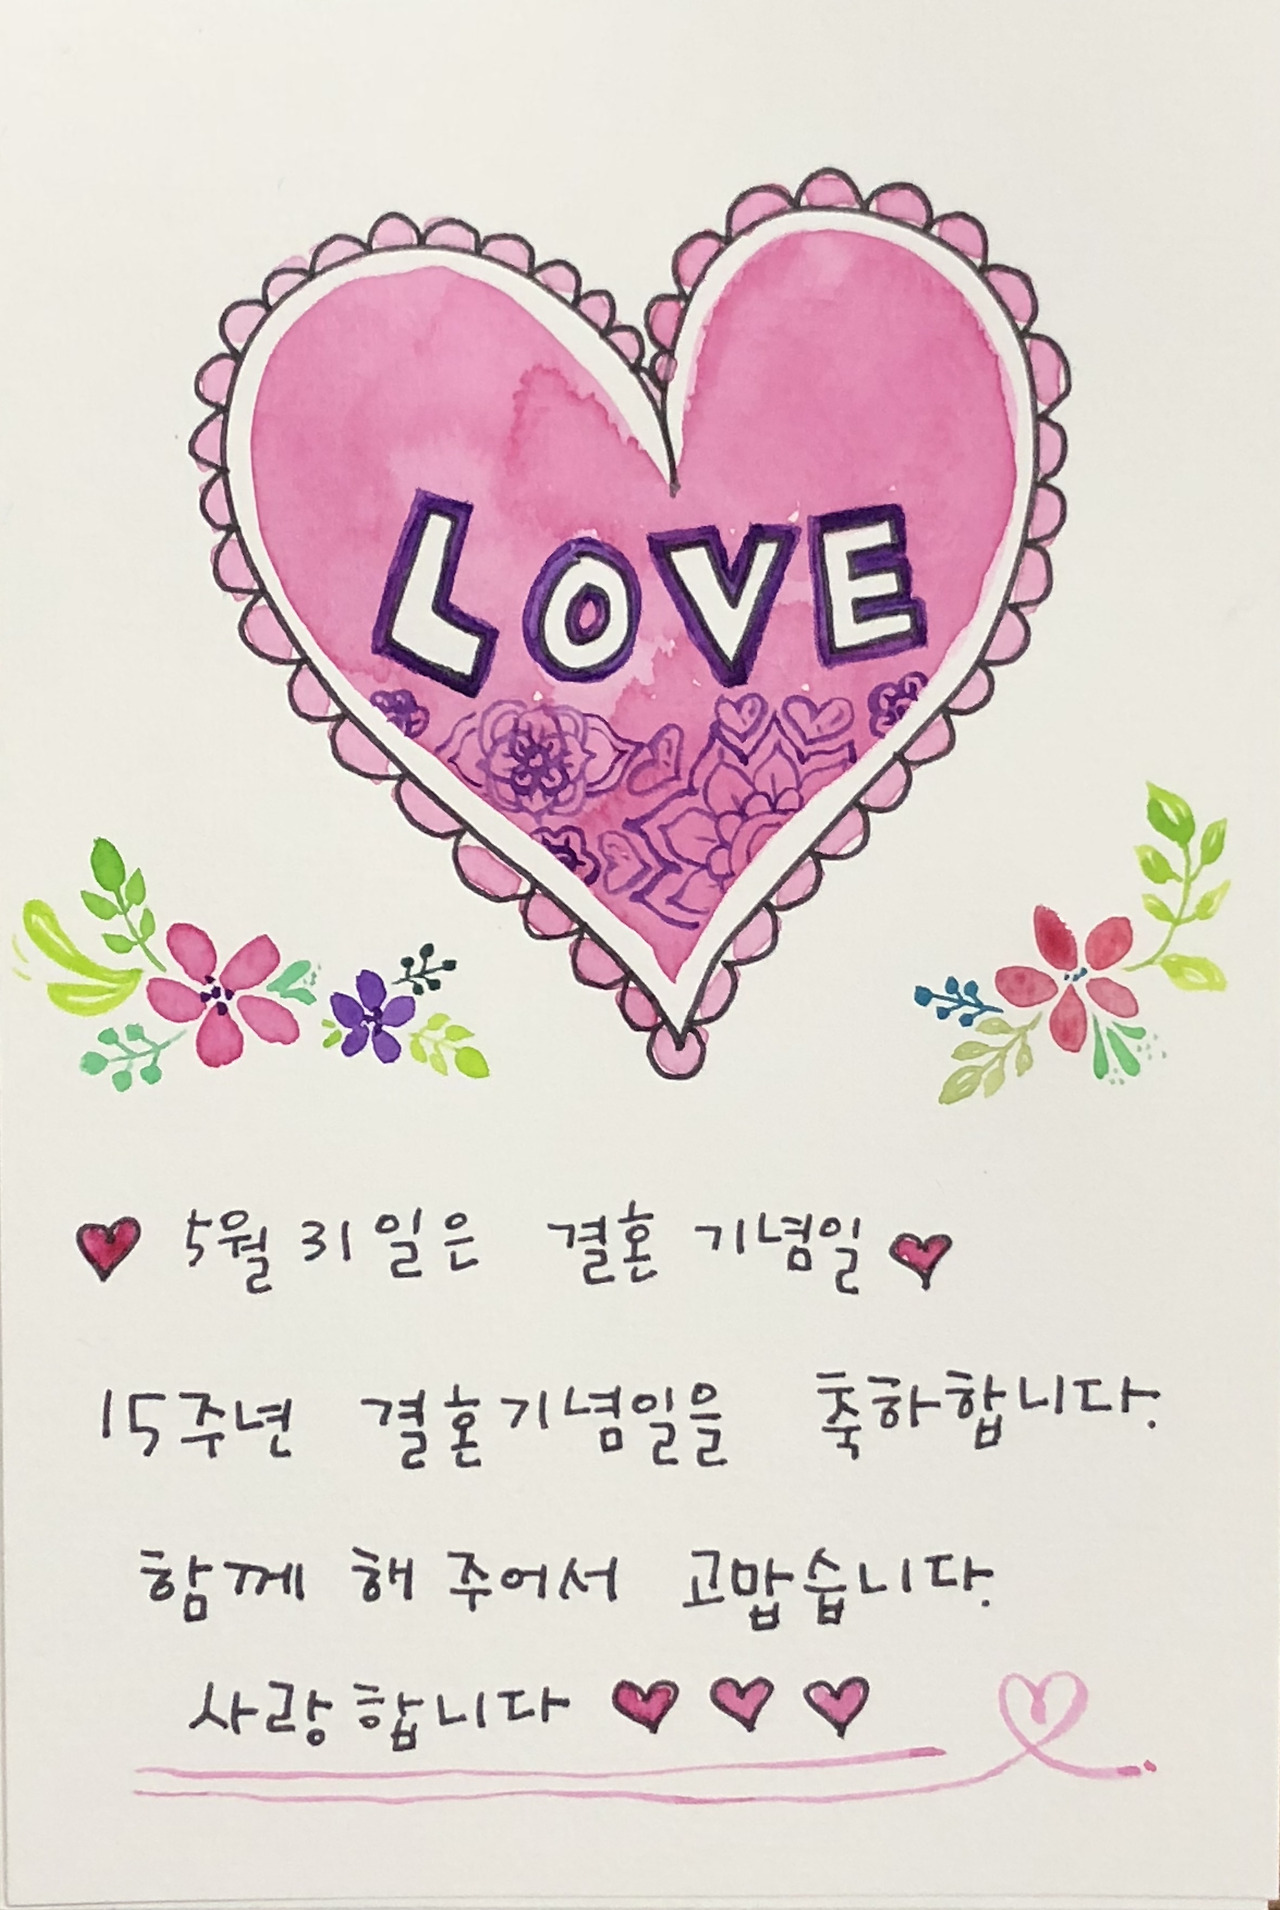 LOVE
♥ 5월 31일은 결혼 기념일 ♥
15주년 결혼기념일을 축하합니다.
함께 해 주어서 고맙습니다.
사랑합니다 ♥ ♥ ♥